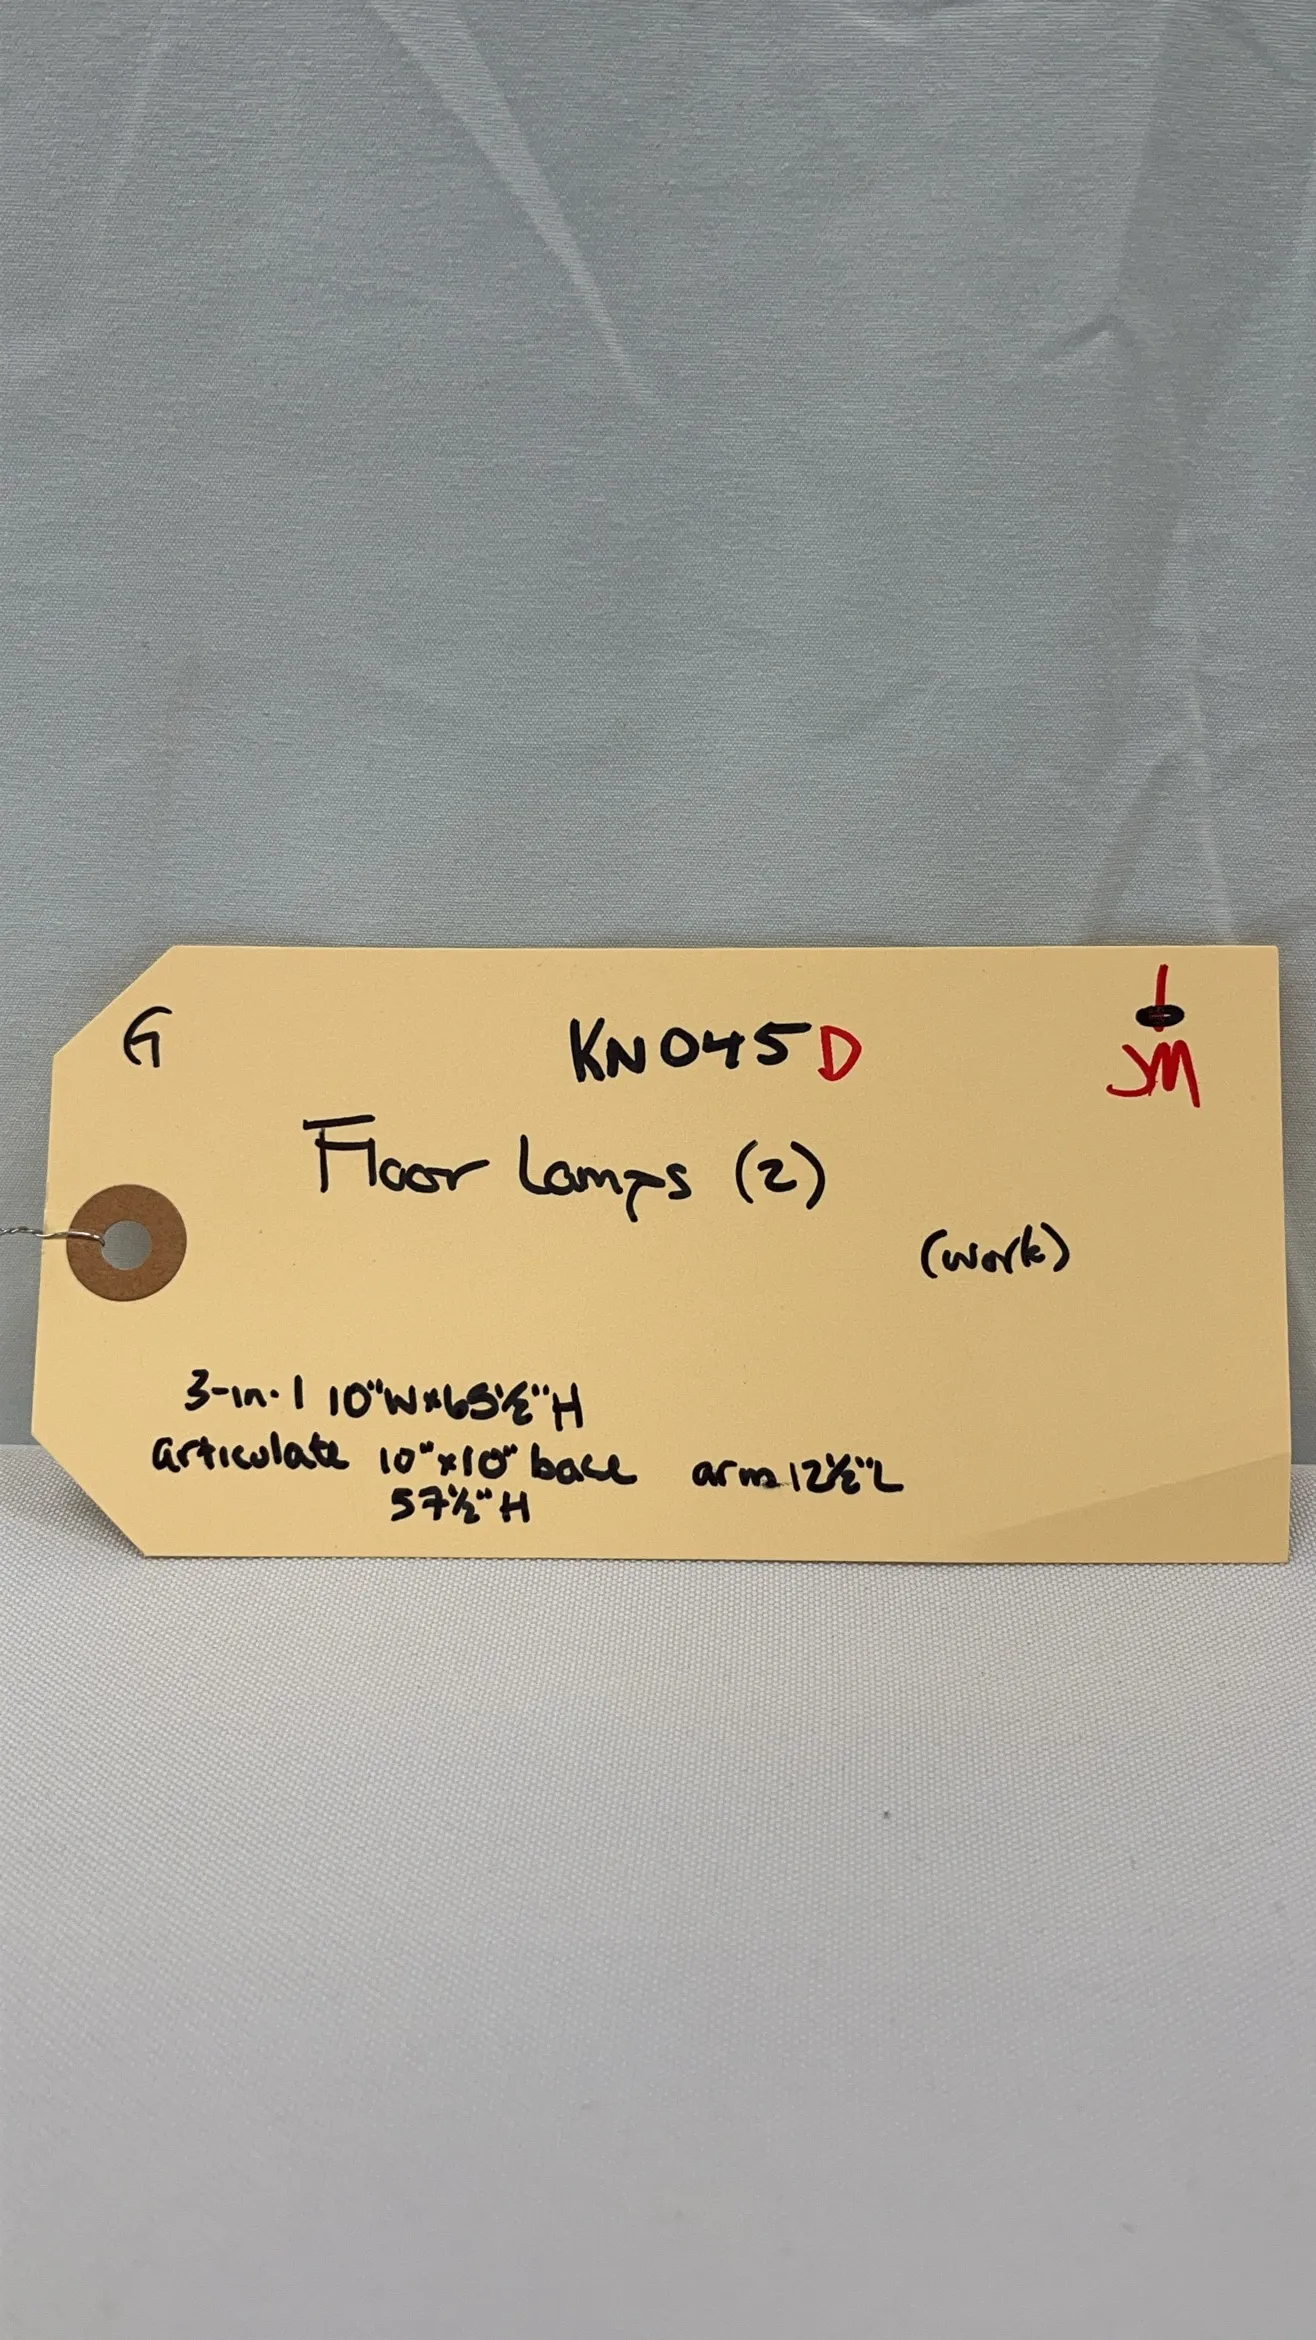 G
KN045D
JM
Floor Lamps (2)
(work)
3-in-1 10"W x 65½"H
articulate 10"x10" base arm 12½"L
57½"H